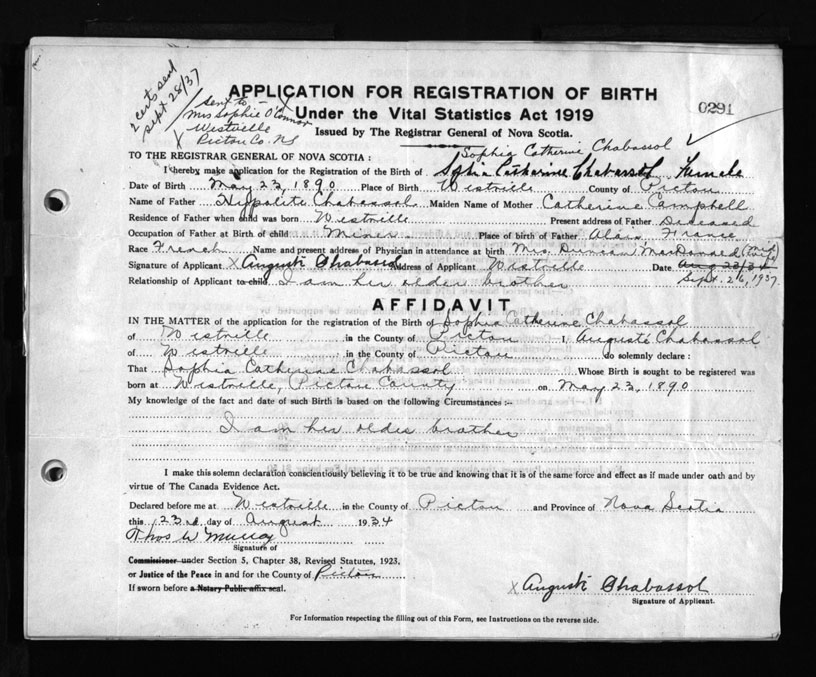 2 certs send
Sept 28/37
sent to -
Mrs Sophie O'Connor
Westville
X Pictou Co. NS
APPLICATION FOR REGISTRATION OF BIRTH
Under the Vital Statistics Act 1919
Issued by The Registrar General of Nova Scotia.
0291
Sophia Catherine Chabassol ✓
TO THE REGISTRAR GENERAL OF NOVA SCOTIA :
I hereby make application for the Registration of the Birth of Sophia Catharine Chabassol Female
Date of Birth May 23, 1890 Place of Birth Westville County of Pictou
Name of Father Hippolite Chabassol Maiden Name of Mother Catherine Campbell
Residence of Father when child was born Westville Present address of Father Deceased
Occupation of Father at Birth of child Miner Place of Birth of Father Alais, France
Race French Name and present address of Physician in attendance at birth Mrs. Duncan MacDonald (Midwife)
Signature of Applicant X Auguste Chabassol Address of Applicant Westville Date Aug 23/34
Sept. 26, 1937
Relationship of Applicant to child I am her older brother
AFFIDAVIT
IN THE MATTER of the application for the registration of the Birth of Sophia Catherine Chabassol
of Westville in the County of Pictou I, Auguste Chabassol
of Westville in the County of Pictou do solemnly declare :
That Sophia Catherine Chabassol Whose Birth is sought to be registered was
born at Westville, Pictou County on May 23, 1890
My knowledge of the fact and date of such Birth is based on the following Circumstances :-
I am her older brother
I make this solemn declaration conscientiously believing it to be true and knowing that it is of the same force and effect as if made under oath and by
virtue of The Canada Evidence Act.
Declared before me at Westville in the County of Pictou and Province of Nova Scotia
this 23rd day of August 1934
Thos W Murray
Signature of
Commissioner under Section 5, Chapter 38, Revised Statutes, 1923,
or Justice of the Peace in and for the County of Pictou
If sworn before a Notary Public affix seal.
X Auguste Chabassol
Signature of Applicant.
For Information respecting the filling out of this Form, see Instructions on the reverse side.